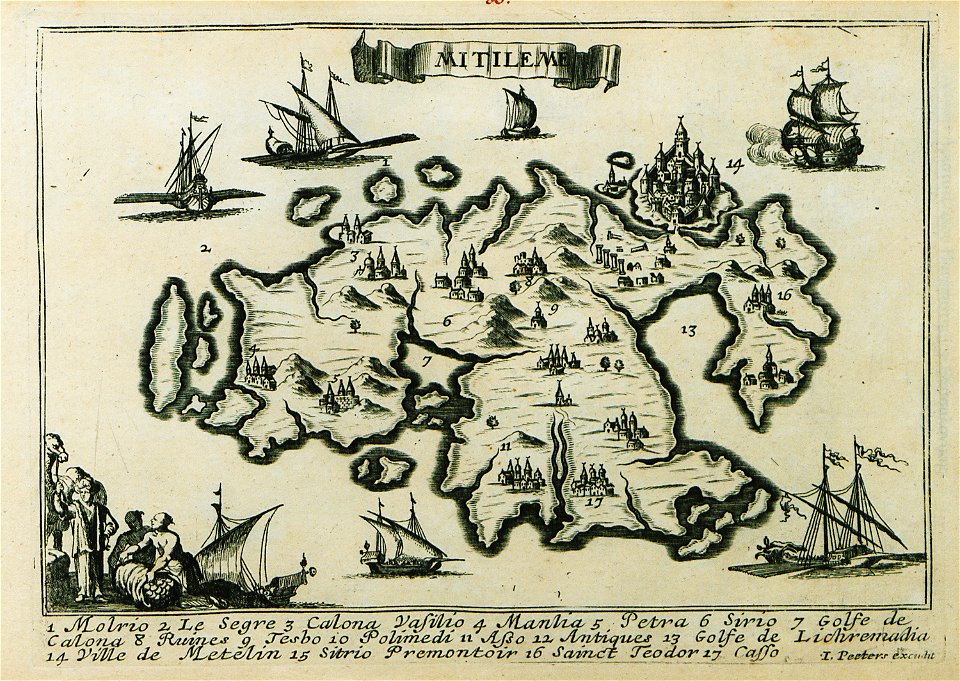 MITILEME
14
1
2
3
8
16
6
9
13
4
7
11
17
1 Molrio 2 Le Segre 3 Calona Vasilio 4 Manlia 5 Petra 6 Sirio 7 Golfe de
Calona 8 Ruines 9 Tesbo 10 Polimedi 11 Aßo 12 Antiques 13 Golfe de Lichremadia
14 Ville de Metelin 15 Sitrio Premontoir 16 Sainct Teodor 17 Casso
I. Peeters excudit